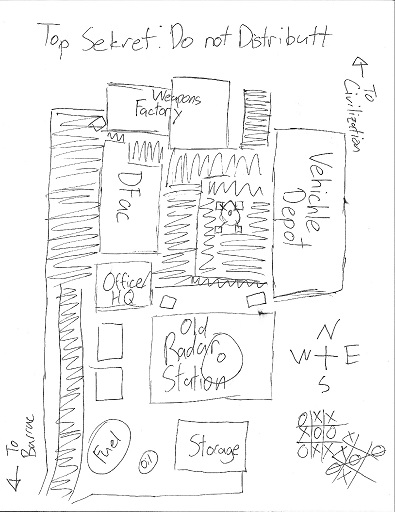 Top Sekret: Do not Distributt
To
Civilization
Weapons
Factory
DFac
Vehichle
Depot
Office/
HQ
Old
Radar
Station
N
W E
S
Fuel
Oil
Storage
To
Barrac
O X X
X O O
O X X